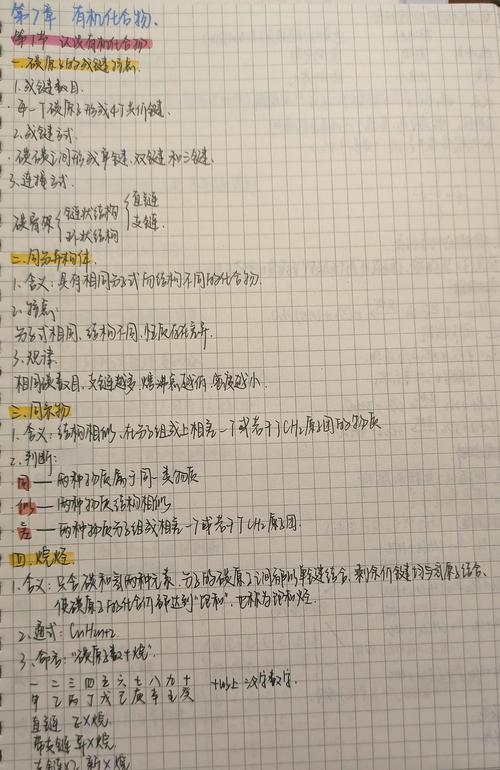 第7章 有机化合物.
第1节 认识有机化合物
一.碳原子的成键特点.
1.成键数目.
·每一个碳原子形成4个共价键.
2.成键方式.
·碳碳之间形成单键、双键和三键.
3.连接方式.
碳骨架 链状结构 直链
支链.
环状结构
二.同分异构体.
1.含义:具有相同分子式而结构不同的化合物.
2.特点:
分子式相同,结构不同,性质存在差异.
3.规律
相同碳数目,支链越多,熔沸点越低,密度越小.
三.同系物
1.含义:结构相似,在分子组成上相差一个或若干个CH2原子团的物质
2.判断:
同——两种物质属于同一类物质
似——两种物质结构相似
差——两种物质分子组成相差一个或若干个CH2原子团.
四.烷烃
1.含义:只含碳和氢两种元素,分子的碳原子之间都以单键结合,剩余价键均与氢原子结合、
使碳原子的化合价都达到"饱和",也称为饱和烃.
2.通式:CnH2n+2
3.命名:"碳原子数+烷".
一二三四五六七八九十 十以上汉字数字.
甲乙丙丁戊己庚辛壬癸
直链 正X烷.
带支链 异X烷.
新X烷